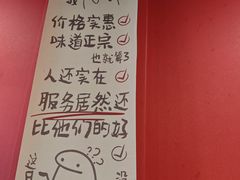 价格实惠
味道正宗
也就算了
人还实在
服务居然还
比他们的好
???
这
没